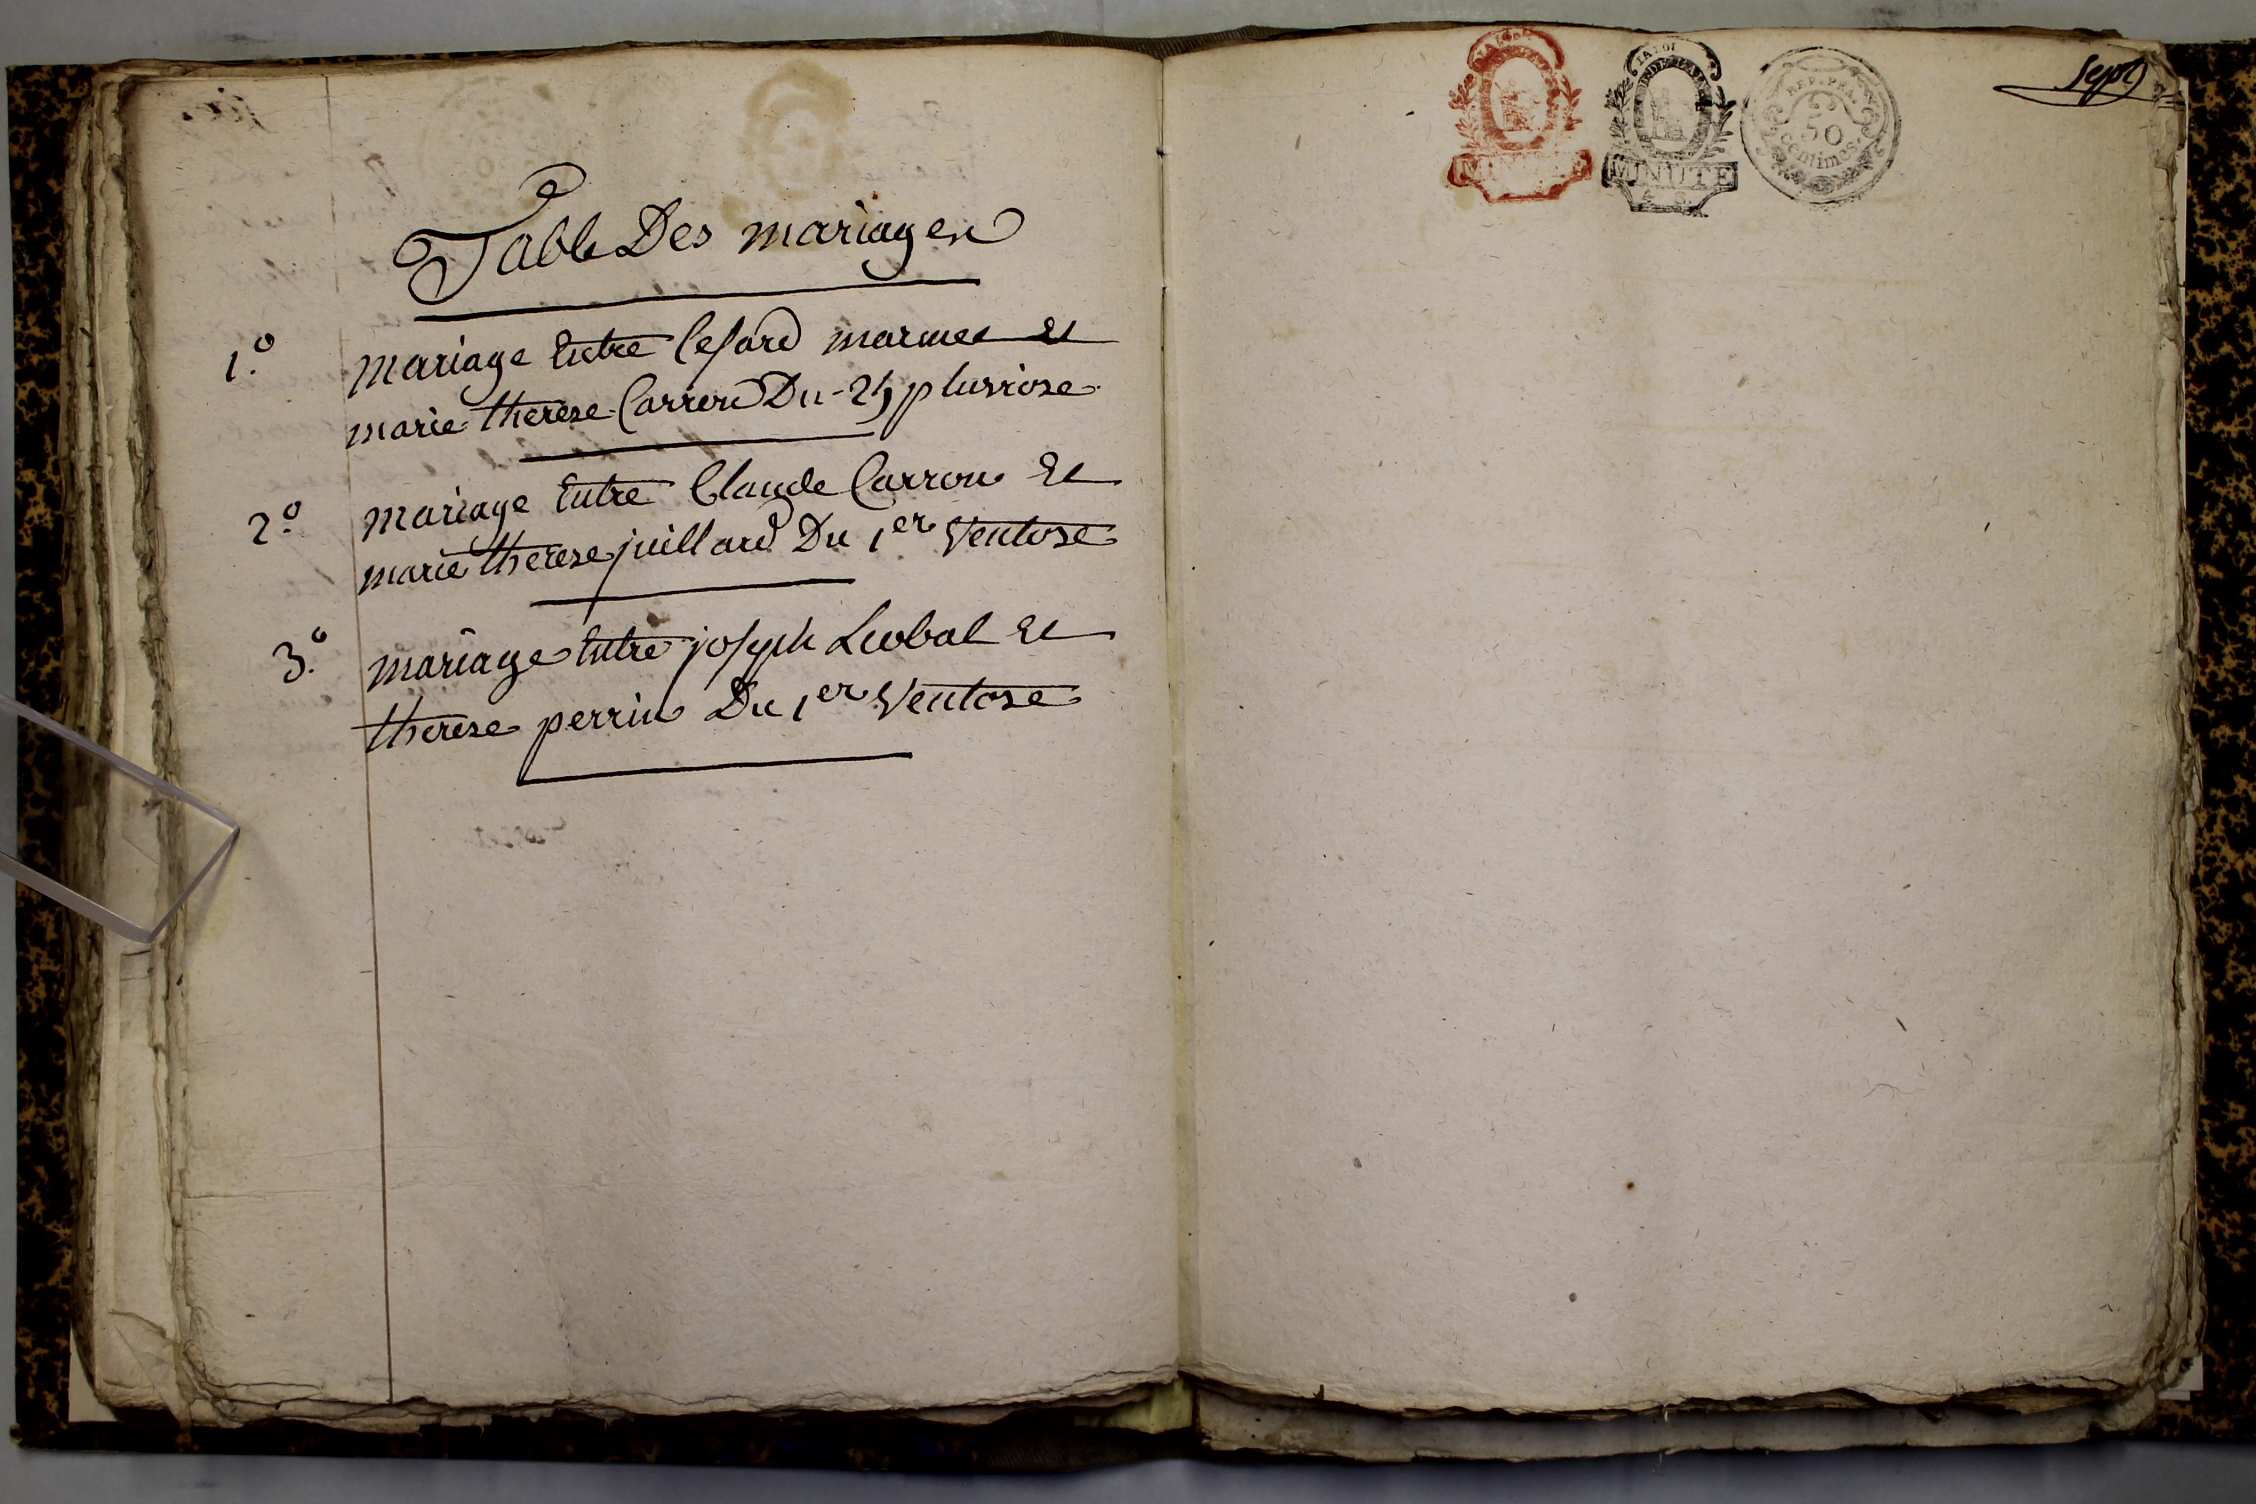 Table Des mariages
1.º mariage Entre Cesard marmet et
marie therese Carron Du 24 pluviose
2.º mariage Entre Claude Carron et
marie therese juillard Du 1er Ventose
3.º mariage Entre joseph Leobal et
therese perrin Du 1er Ventose
LA LOI
MINUTE
REP. FRA.
50
Centimes
Sept